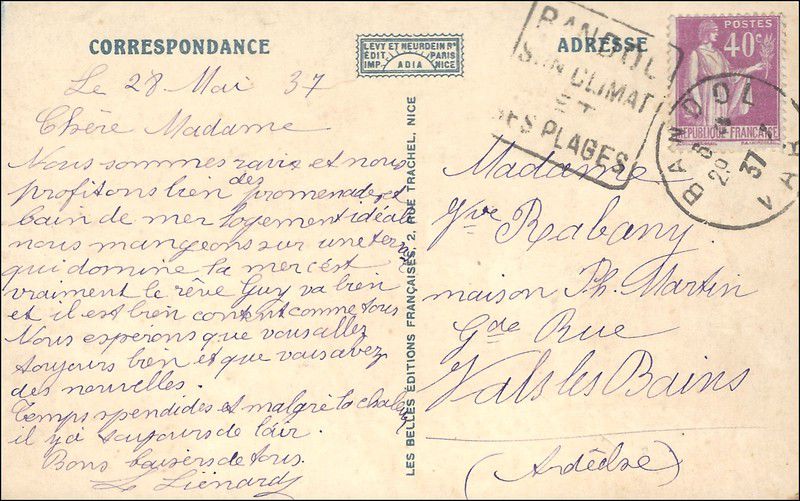 CORRESPONDANCE
LEVY ET NEURDEIN Rs
ÉDIT. PARIS
IMP. ADIA NICE
ADRESSE
Le 28 Mai 37
Chère Madame
Nous sommes ravis et nous
profitons bien des promenades et
bain de mer logement idéale
nous mangeons sur une terrasse
qui domine la mer c'est
vraiment le rêve Guy va bien
et il est bien content comme tous
Nous esperons que vous allez
toujours bien et que vous avez
des nouvelles.
Temps spendides et malgré la chaleur
il y a toujours de l'air.
Bons baisers de tous.
Lienard
LES BELLES ÉDITIONS FRANÇAISES, 2, RUE TRACHEL, NICE
BANDOL
SON CLIMAT
ET
SES PLAGES
POSTES
40c
REPUBLIQUE FRANÇAISE
BANDOL
VAR
37
Madame
Vve Rabany
maison Ph. Martin
Gde Rue
Vals les Bains
(Ardèche)